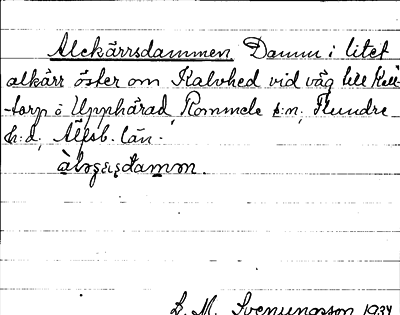 Alekärrsdammen Damm i litet
alkärr öster om Kalvhed vid väg till Kull-
torp i Upphärad, Rommele s:n, Flundre
h:d, Älfsb. län.
D. M. Svenungsson 1934